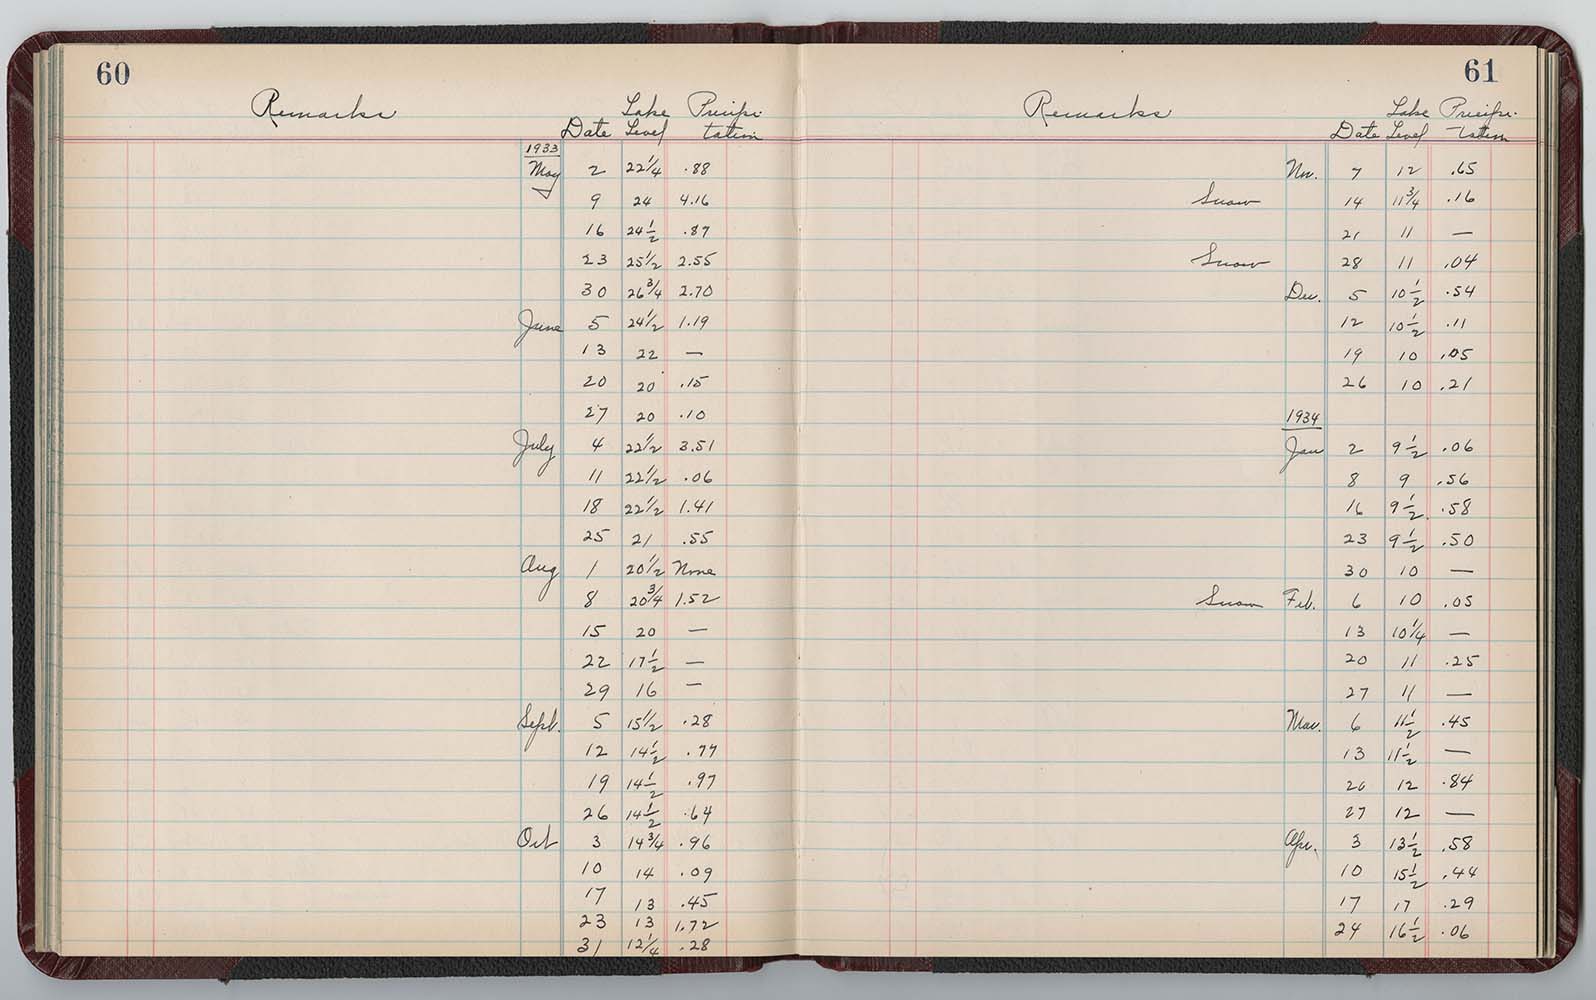 60
Remarks Date Lake Level Precipi-tation
1933
May 2 22 1/4 .88
9 24 4.16
16 24 1/2 .87
23 25 1/2 2.55
30 26 3/4 2.70
June 5 24 1/2 1.19
13 22 —
20 20 .15
27 20 .10
July 4 22 1/2 3.51
11 22 1/2 .06
18 22 1/2 1.41
25 21 .55
Aug 1 20 1/2 None
8 20 3/4 1.52
15 20 —
22 17 1/2 —
29 16 —
Sept. 5 15 1/2 .28
12 14 1/2 .77
19 14 1/2 .97
26 14 1/2 .64
Oct 3 14 3/4 .96
10 14 .09
17 13 .45
23 13 1.72
31 12 1/4 .28
61
Remarks Date Lake Level Precipi-tation
Nov. 7 12 .65
Snow 14 11 3/4 .16
21 11 —
Snow 28 11 .04
Dec. 5 10 1/2 .54
12 10 1/2 .11
19 10 .05
26 10 .21
1934
Jan 2 9 1/2 .06
8 9 .56
16 9 1/2 .58
23 9 1/2 .50
30 10 —
Snow Feb. 6 10 .05
13 10 1/4 —
20 11 .25
27 11 —
Mar. 6 11 1/2 .45
13 11 1/2 —
20 12 .84
27 12 —
Apr. 3 13 1/2 .58
10 15 1/2 .44
17 17 .29
24 16 1/2 .06